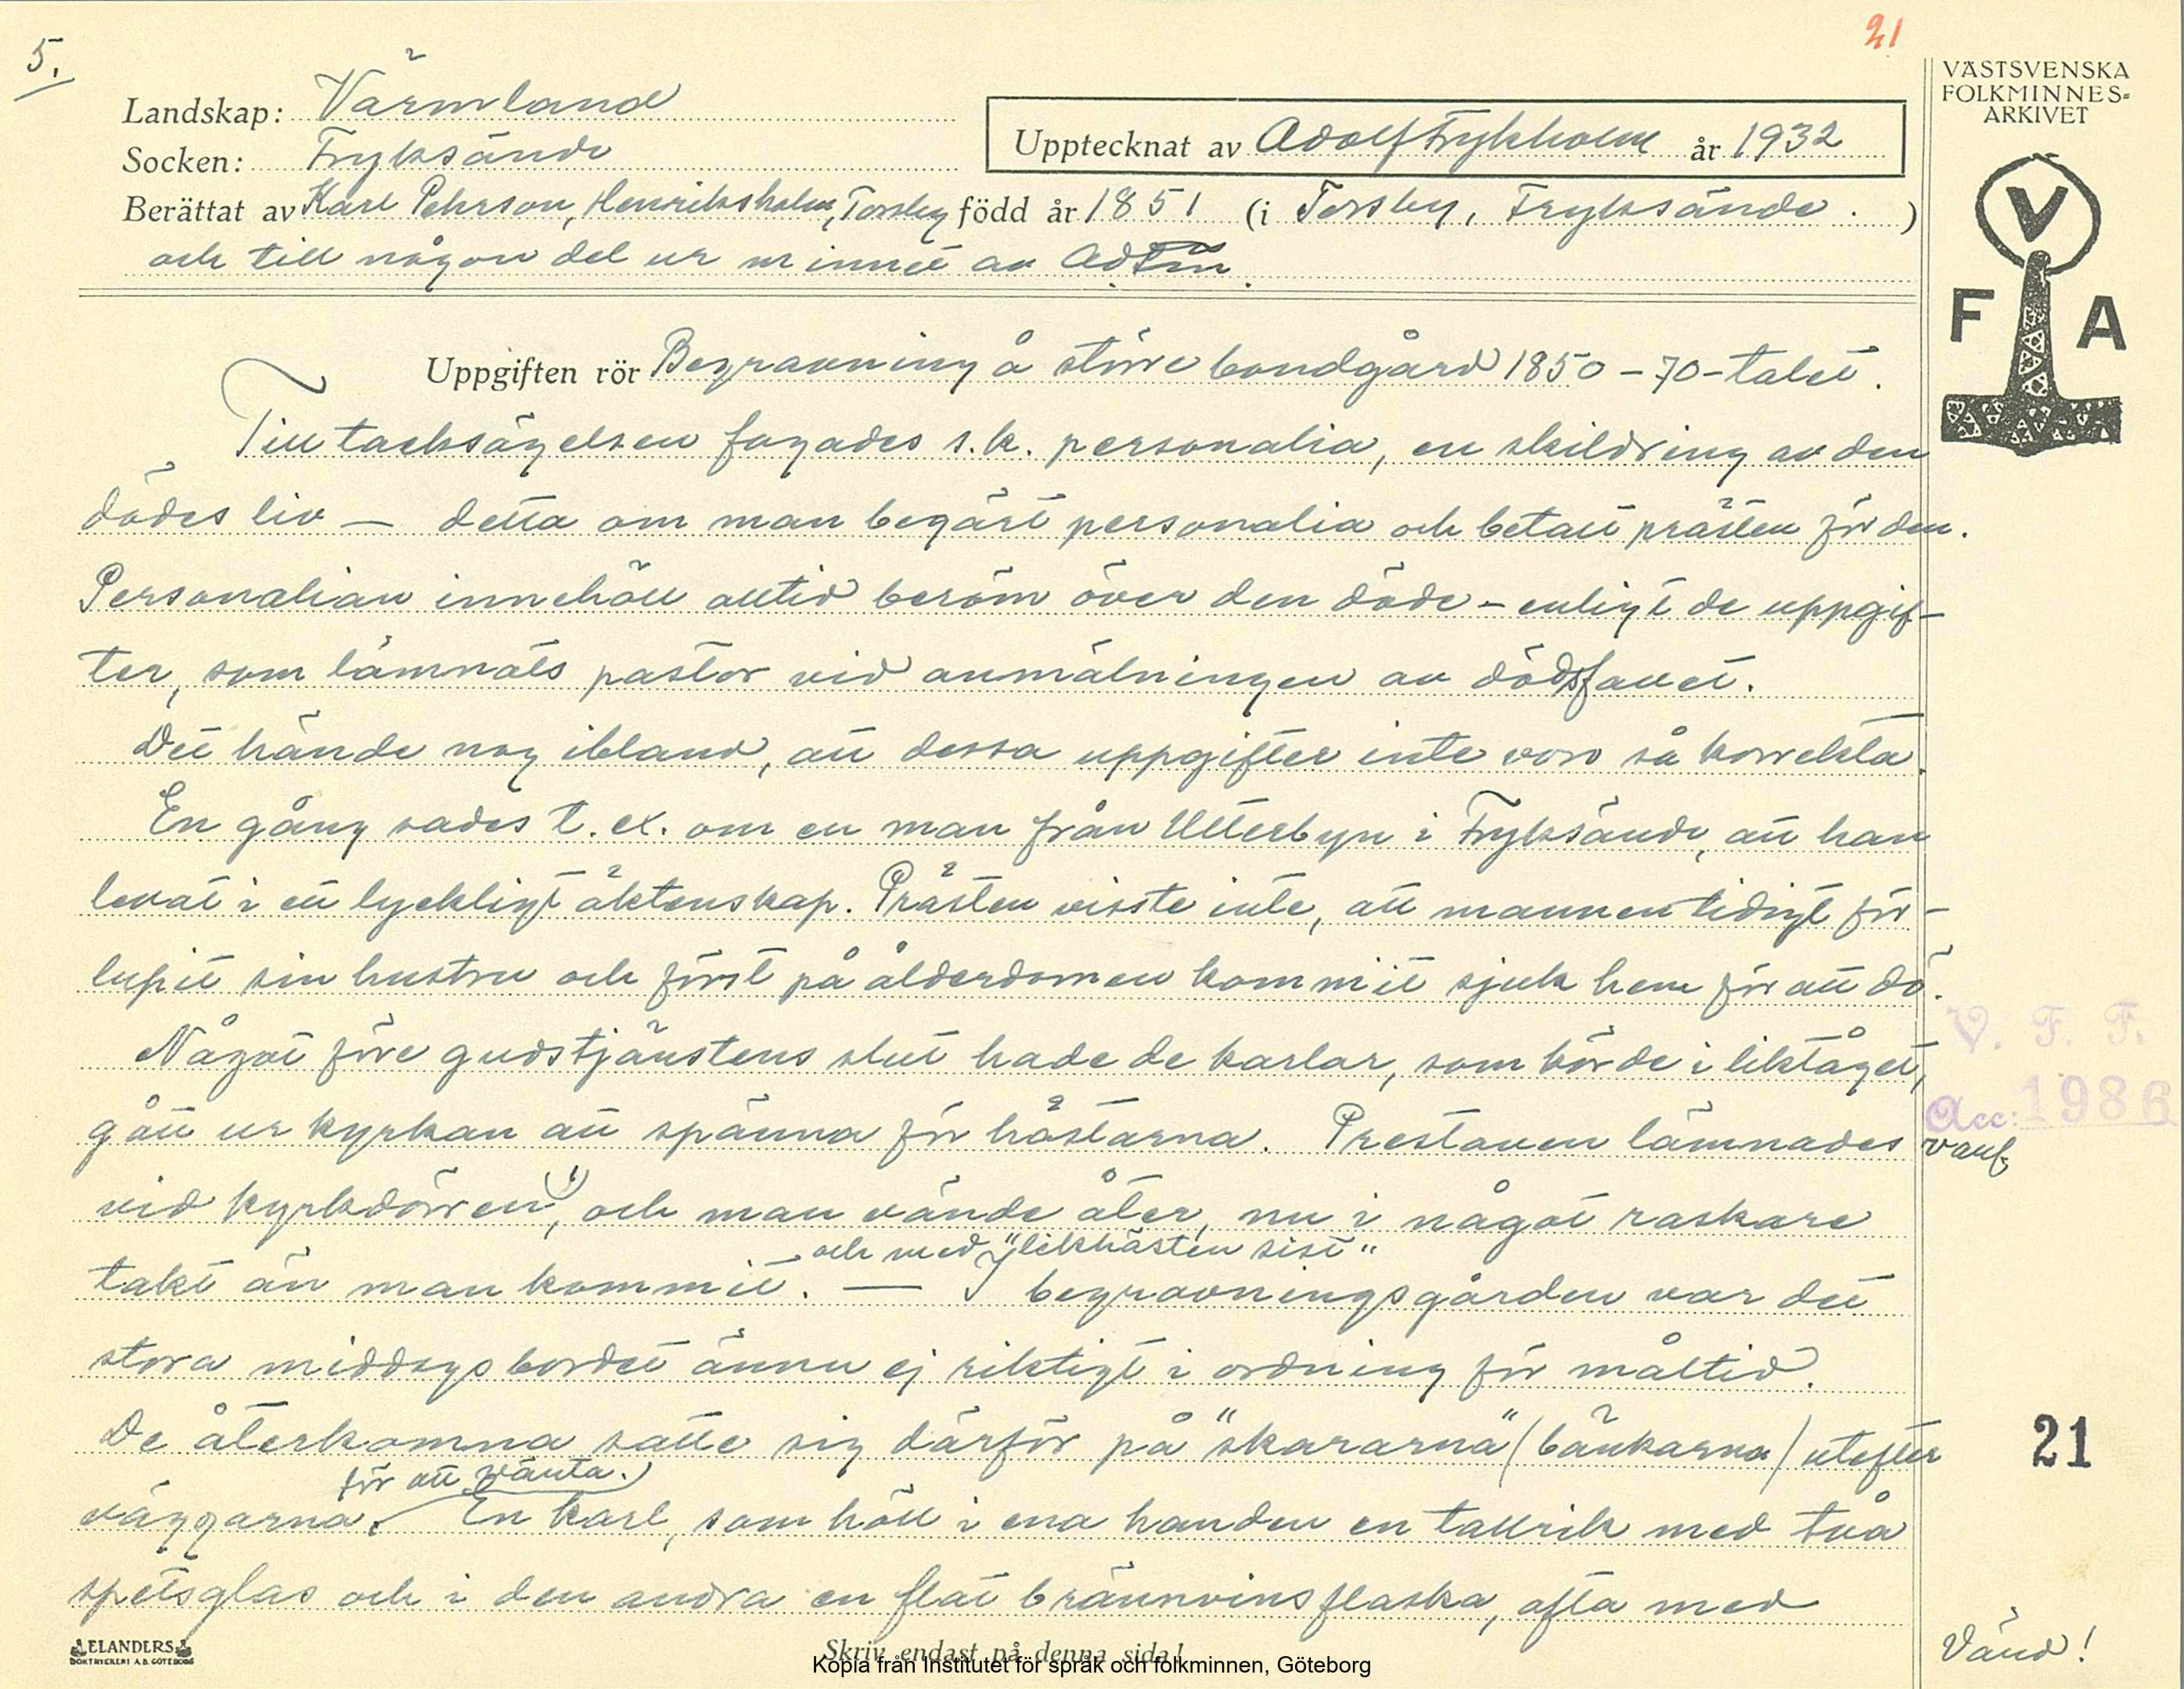 21
5.
VÄSTSVENSKA
FOLKMINNES=
ARKIVET
Landskap: Värmland
Upptecknat av Adolf Frykholm år 1932
Socken: Fryksände
Berättat av Karl Pehrson, Henriksholm, Torsby född år 1851 (i Torsby, Fryksände. )
och till någon del ur minnet av
V
F A
Uppgiften rör Begravning å större bondgård 1850-70-talet.
Till tacksägelsen fogades s.k. personalia, en skildring av den
dödes liv — detta om man begärt personalia och betalt prästen för den.
Personalian innehöll alltid beröm över den döde - enligt de uppgif-
ter, som lämnats pastor vid anmälningen av dödsfallet.
Det hände nog ibland, att dessa uppgifter inte voro så korrekta.
En gång sades t.ex. om en man från Utterbyn i Fryksände, att han
levat i ett lyckligt äktenskap. Prästen visste inte, att mannen tidigt för-
lupit sin hustru och först på ålderdomen kommit sjuk hem för att dö.
Något före gudstjänstens slut hade de karlar, som körde i liktåget,
V. F. F.
Acc: 1986
gått ur kyrkan att spänna för hästarna. Prestaven lämnades
vid kyrkdörren 1), och man vände åter, nu i något raskare
och med "likhästen sist"
takt än man kommit. — I begravningsgården var det
stora middagsbordet ännu ej riktigt i ordning för måltid.
De återkomna satte sig därför på "skararna" (bänkarna) utefter
21
för att vänta.
väggarna. En karl, som höll i ena handen en tallrik med två
spetsglas och i den andra en flat brännvinsflaska, ofta med
Vänd!
ELANDERS
BOKTRYCKERI A.B. GÖTEBORG
Skriv endast på denna sida!
Kopia från Institutet för språk och folkminnen, Göteborg